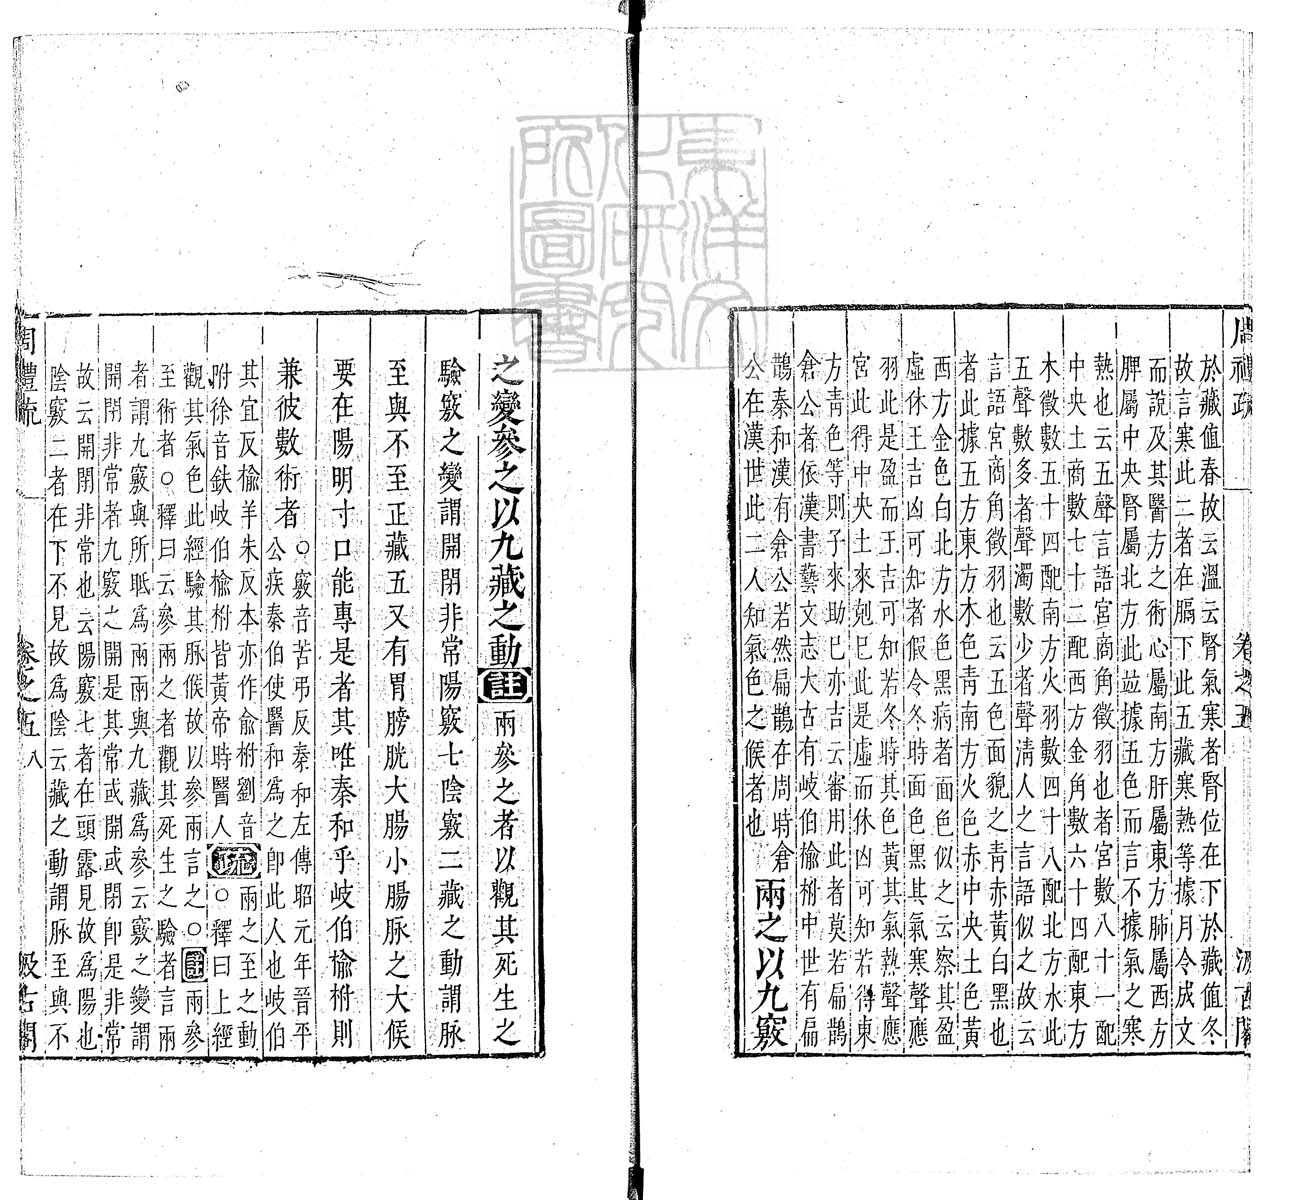 周禮疏 卷之五 汲古閣
於藏值春故云溫云腎氣寒者腎位在下於藏值冬
故言寒此二者在膈下此五藏寒熱等據月令成文
而說及其醫方之術心屬南方肝屬東方肺屬西方
脾屬中央腎屬北方此竝據五色而言不據氣之寒
熱也云五聲言語宮商角徵羽也者宮數八十一配
中央土商數七十二配西方金角數六十四配東方
木徵數五十四配南方火羽數四十八配北方水此
五聲數多者聲濁數少者聲淸人之言語似之故云
言語宮商角徵羽也云五色面貌之青赤黃白黑也
者此據五方東方木色靑南方火色赤中央土色黃
西方金色白北方水色黑病者面色似之云察其盈
虛休王吉凶可知者假令冬時面色黑其氣寒聲應
羽此是盈而王吉可知若冬時其色黃其氣熱聲應
宮此得中央土來剋巳此是虛而休凶可知若得東
方靑色等則子來助巳亦吉云審用此者莫若扁鵲
倉公者依漢書藝文志大古有岐伯楡柎中世有扁
鵲秦和漢有倉公若然扁鵲在周時倉
公在漢世此二人知氣色之候者也
兩之以九竅
之變參之以九藏之動註兩參之者以觀其死生之
驗竅之變謂開閉非常陽竅七陰竅二藏之動謂脉
至與不至正藏五又有胃膀胱大腸小腸脉之大候
要在陽明寸口能專是者其唯秦和乎岐伯楡柎則
兼彼數術者
○竅音苦弔反秦和左傳昭元年晉平
公疾秦伯使醫和爲之卽此人也岐伯
其宜反楡羊朱反本亦作俞柎劉音
附徐音鈇岐伯楡柎皆黃帝時醫人
疏
兩之至之動
○釋曰上經
觀其氣色此經驗其脉候故以參兩言之○註兩參
至術者○釋曰云參兩之者觀其死生之驗者言兩
者謂九竅與所眡爲兩兩與九藏爲參云竅之變謂
開閉非常者九竅之開是其常或開或閉卽是非常
故云開閉非常也云陽竅七者在頭露見故爲陽也
陰竅二者在下不見故爲陰云藏之動謂脉至與不
周禮疏 卷之五 八 汲古閣